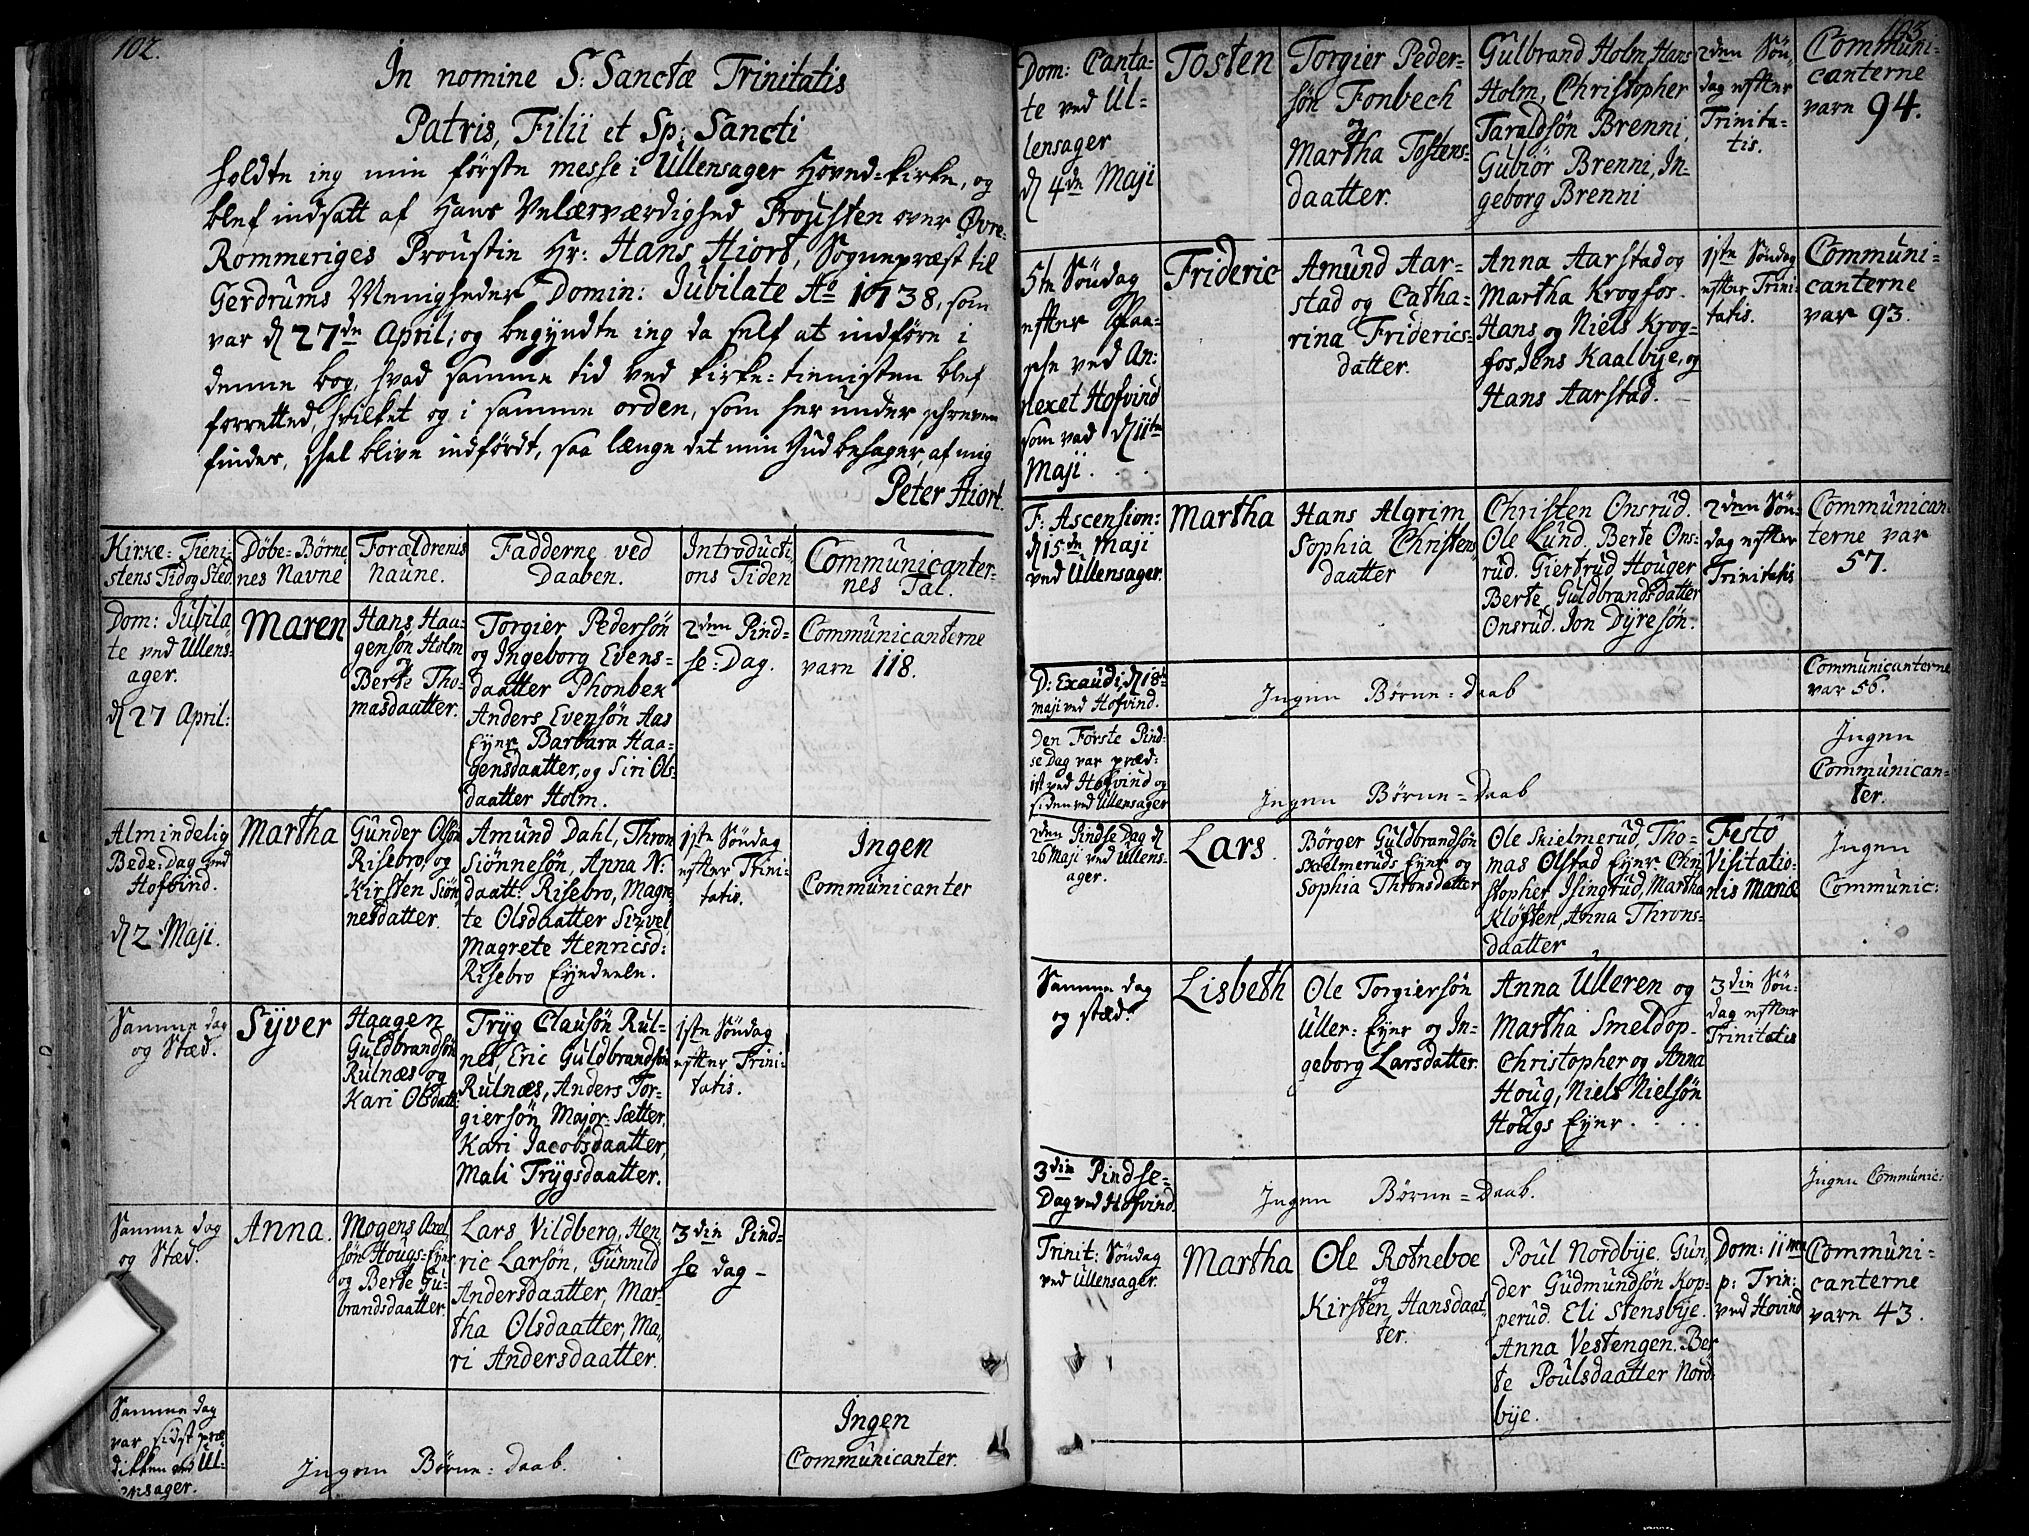 102.
In nomine S: Sanctæ Trinitatis
Patris, Filii et Sp: Sancti
holdte ieg min förste messe i Ullensager Hoved-kirke, og
blef indsatt af Hans Velærværdighed Prousten over Øvre-
Rommeriges Proustie Hr: Hans Hiort, Sognepræst til
Gerdrums Menigheder Domin: Jubilate Aº 1738, som
var d 27de April; og begyndte ieg da self at indföre i
denne bog, hvad samme tid ved kirke-tienisten blef
forretted, hvilket og i samme orden, som her under schreven
findes, shal blive indfördt, saa længe det min Gud behager, af mig
Peter Hiort.
Kirke-Tieni-
stens Tid og Sted
Döbe-Börne
nes Navne
Forældrenis
naune.
Fadderne ved
Daaben.
Introducti
ons Tiden
Communicanter-
nes Tal.
Dom: Jubila
te ved Ullens-
ager.
d 27 April:
Maren
Hans Haa-
gensön Holm
og
Berte Tho-
masdaatter.
Torgier Pedersön
og Ingeborg Evens-
daatter Phonbek
Anders Evensön Aas
Eyer Barbara Haa-
gensdaatter, og Siri Ols-
daatter Holm.
2den Pind-
se-Dag.
Communicanterne
varn 118.
Almindelig
Bede-Dag ved
Hofvind.
d 2 Maji.
Martha
Gunder Olsön
Risebro, og
Kirsten Siön-
nesdatter.
Amund Dahl, Thron
Siönnesön, Anna N:
daatt: Risebro, Magre-
te Olsdaatter Sizvel
Magrete Henricsd:
Risebro Eyndeele.
1ste Söndag
efter Trini-
tatis.
Ingen
Communicanter
Samme dag
og Stæd.
Syver
Haagen
Guldbrandsön
Rulnæs og
Kari Olsdatt:
Tryg Clausön Rul-
nes, Eric Guldbrandsön
Rulnæs, Anders Tor-
giersön Major-Sætter.
Kari Jacobsdaatter,
Mali Trygsdaatter.
1ste Söndag
efter Trini-
tatis.
Samme dag
og Stæd.
Anna.
Mogens Axel
sön Hougs-Eyer
og Berte Gu-
brandsdaatter.
Lars Vildberg, Hen-
ric Larsön, Gunnild
Andersdaatter, Mar-
tha Olsdaatter, Ma-
ri Andersdaatter.
3die Pind-
se dag-
Samme dag
var sidst præ-
dikken ved Ul-
ensager.
Ingen Börne-daab.
Ingen
Communicanter.
103.
Dom: Canta-
te ved Ul-
lensager
d 4de Maji
Tosten
Torgier Peder-
sön Fonbech
og
Martha Tostens-
daatter.
Gulbrand Holm, Hans
Holm, Christopher
Taraldsön Brenni,
Gubiör Brenni, In-
geborg Brenni
2den Sön-
dag efter
Trinita-
tis.
Communi-
canterne
varn 94.
5te Söndag
efter Paa-
sche ved An-
nexet Hofvind
som var d 11te
Maji.
Frideric
Amund Aar-
stad og Catha-
rina Friderics-
datter.
Anna Aarstad og
Martha Krogfos.
Hans og Niels Krog-
fos, Jens Kaalbye, og
Hans Aarstad.
1ste Söndag
efter Trini-
tatis.
Communi-
canterne
var 93.
F: Ascension:
d 15de Maji
ved Ullensager.
Martha
Hans Algrim
Sophia Christens
daatter
Christen Onsrud.
Ole Lund. Berte Ons-
rud. Giertrud Houger
Berte Guldbrandsdatter
Onsrud. Jon Dyresön.
2den Sön-
dag efter
Trinitatis
Communican-
terne var
57.
D: Exaudi, d 18de
maji ved Hofvind.
Ingen Börne-daab
Communicanterne
var 56.
Den Förste Pind-
se Dag var præd-
ist ved Hofvind og
siden ved Ullensager
Ingen Börne-Daab
Ingen
Communican-
ter.
2den Pindse Dag d
26 Maji ved Ullens-
ager.
Lars.
Börger Guldbrandsön
Skielmeruds Eyer og
Sophia Thronsdatter
Ole Skielmerud, Tho-
mas Olstad Eyer Chri
stopher Isingrud, Martha
Klöften, Anna Throns-
daatter
Festo
Visitatio-
nis Mariæ
Ingen
Communic:
Samme dag
og stæd.
Lisbeth
Ole Torgiersön
Uller: Eyer og In-
geborg Larsdatter.
Anna Ulleren og
Martha Smeldop-
Christopher og Anna
Houg, Niels Nielsön
Hougs Eyer.
3die Sön-
dag efter
Trinitatis
3die Pindse-
Dag ved Hofvind.
Ingen Börne-Daab.
Ingen Communic:
Trinit: Söndag
ved Ullensager.
Martha
Ole Rotneboe
og
Kirsten Hansdaat-
ter.
Poul Nordbye. Gun-
der Gudmundsön Kop-
perud. Eli Stensbye.
Anna Vestengen. Ber
te Poulsdaatter Nord-
bye.
Dom: 11me
p: Trin:
ved Hovind
Communi-
canterne
varn 43.